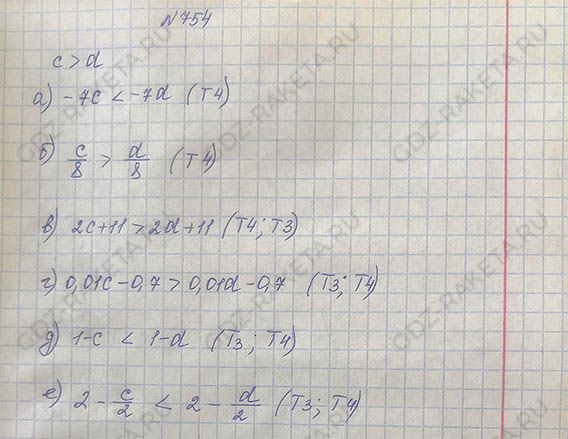 N754
c > d
а) -7c < -7d (Т4)
б) c/8 > d/8 (Т4)
в) 2c+11 > 2d+11 (Т4; Т3)
г) 0,01c - 0,7 > 0,01d - 0,7 (Т3; Т4)
д) 1-c < 1-d (Т3; Т4)
е) 2 - c/2 < 2 - d/2 (Т3; Т4)
GDZ-RAKETA.RU
GDZ-RAKETA.RU
GDZ-RAKETA.RU
GDZ-RAKETA.RU
GDZ-RAKETA.RU
GDZ-RAKETA.RU
GDZ-RAKETA.RU
GDZ-RAKETA.RU
GDZ-RAKETA.RU